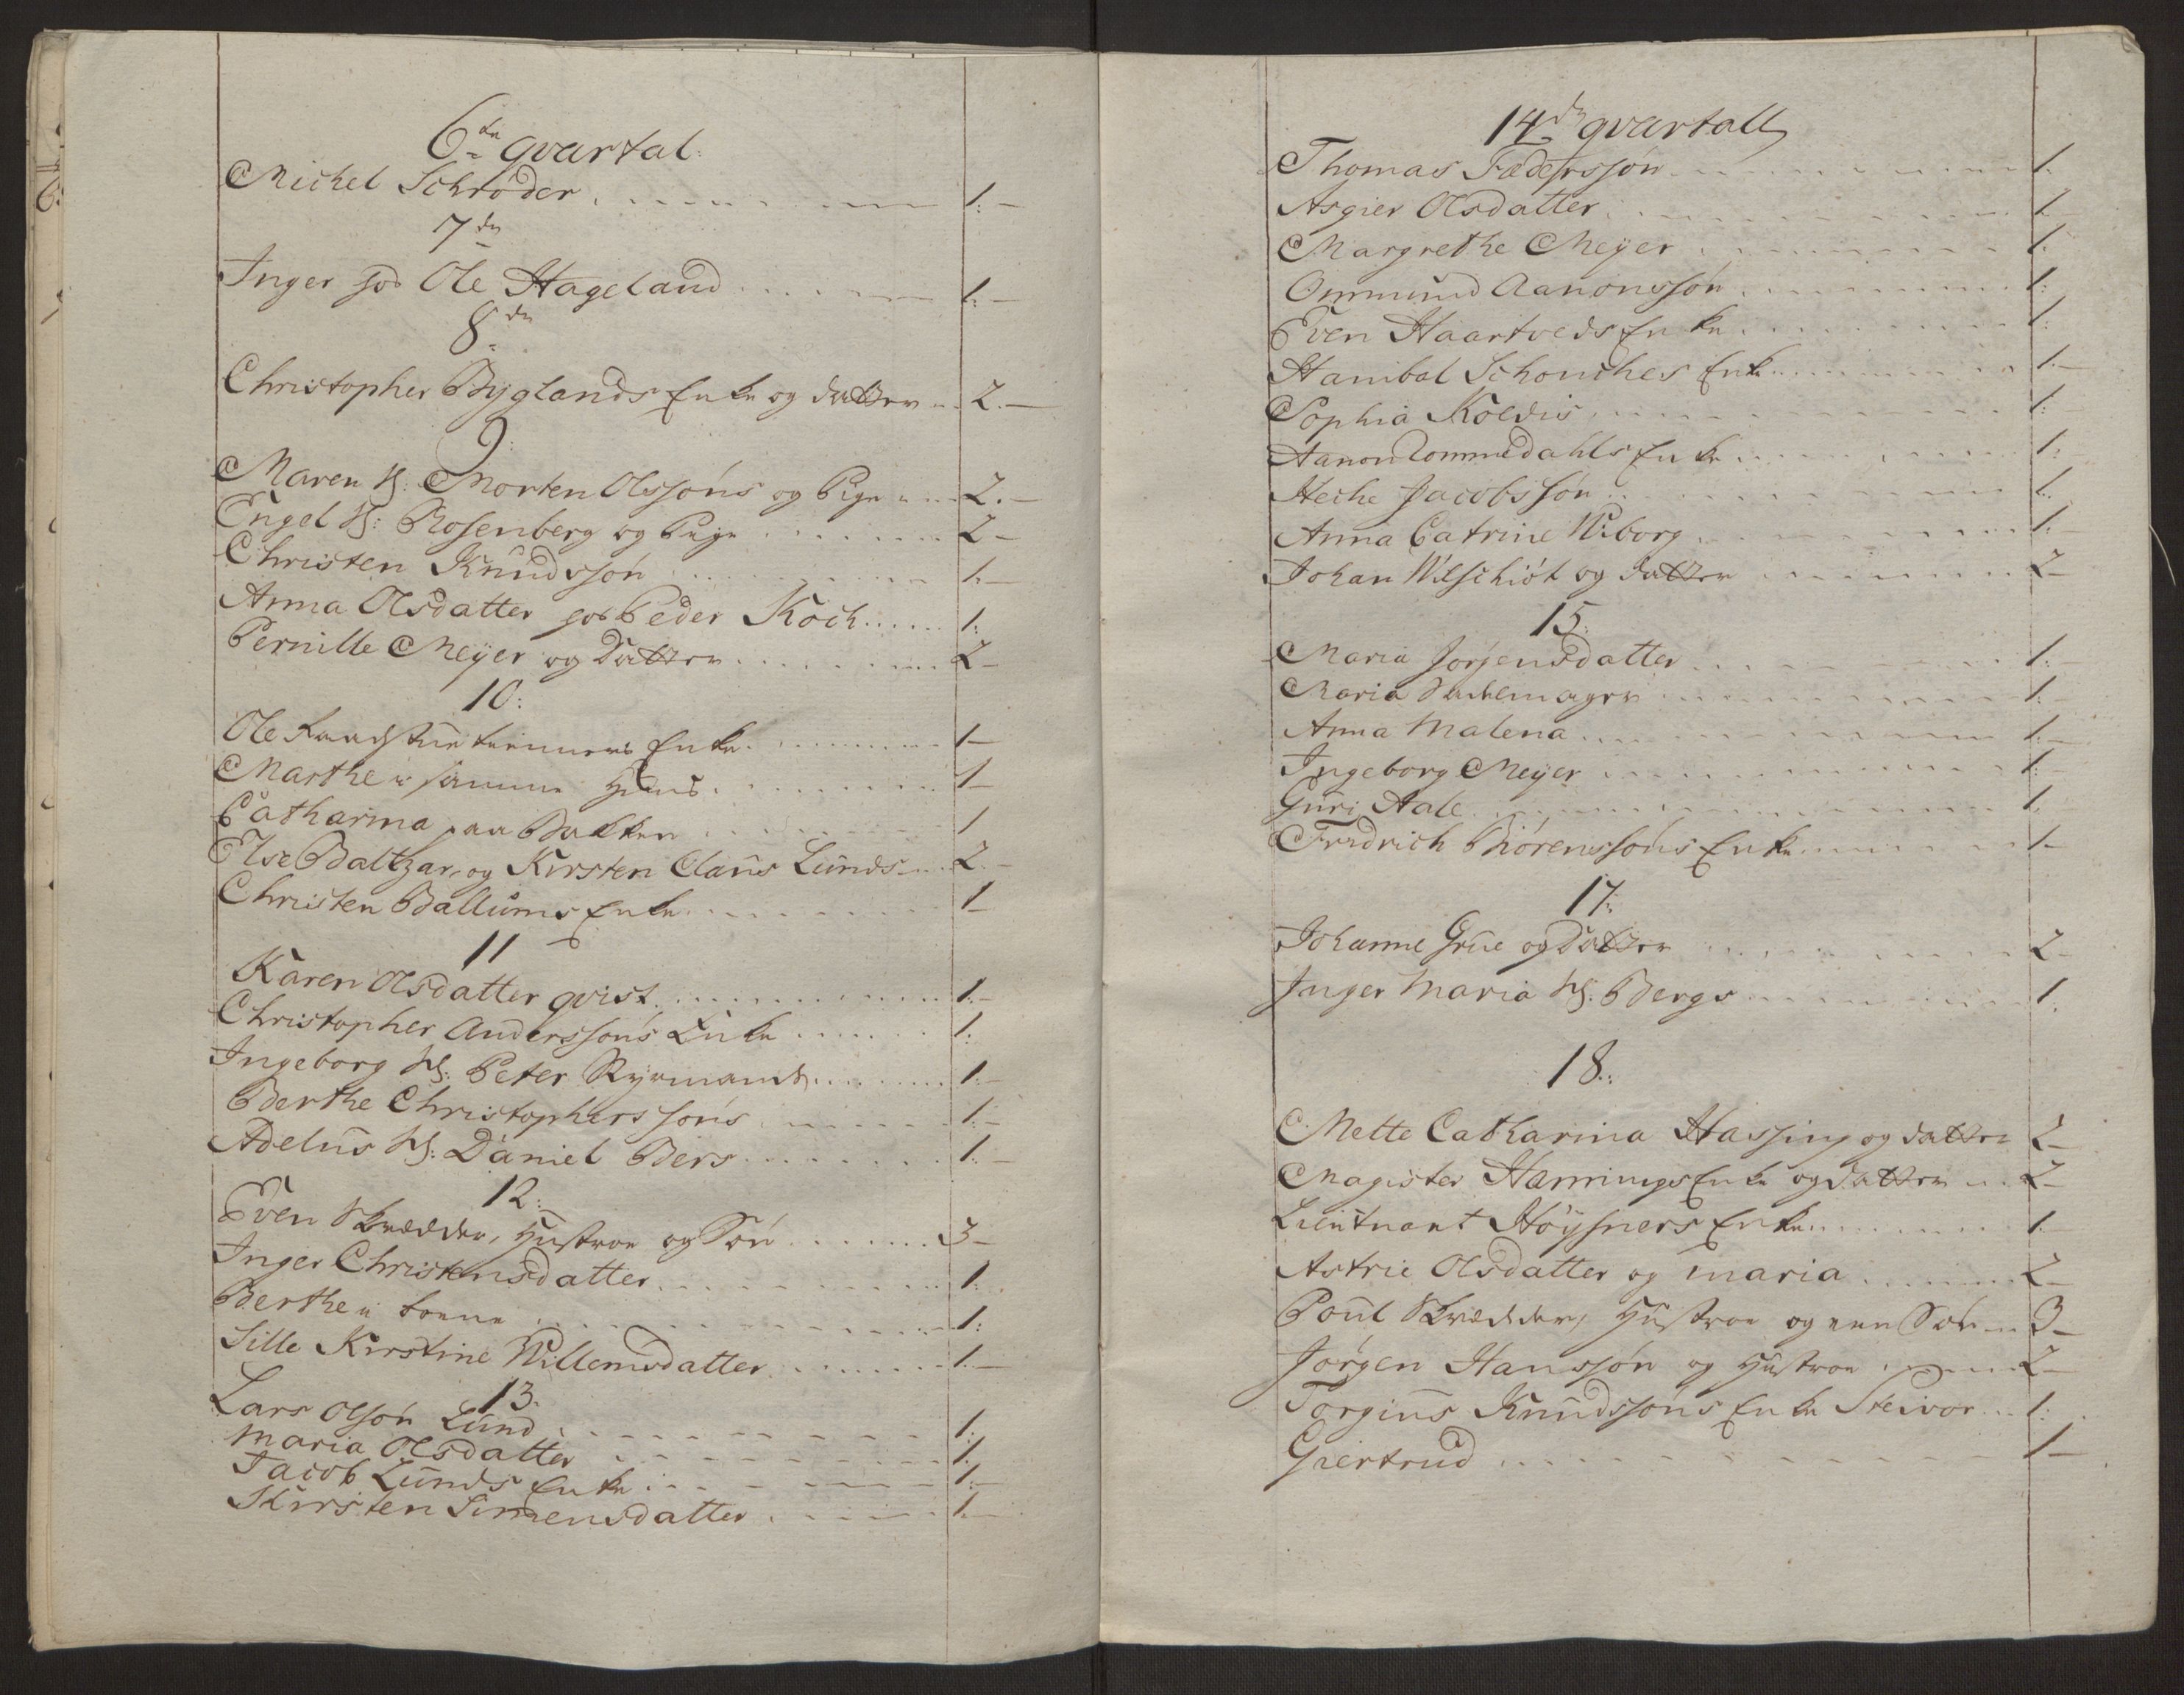 6te qvartal:
Michel Schrøder 1:
7de
Inger hos Ole Hageland 1:
8de
Christopher Byglands Enke og datter 2.
9:
Maren Sl: Morten Olssøns og Pige 2.
Engel Sl: Rosenberg og Pige 2
Christen Knudssøn 1.
Anna Olsdatter hos Peder Koch 1:
Pernille Meyer og Datter 2
10:
Ole Raadstuetieners Enke 1
Marthe i samme Huus 1
Catharina paa Bakken 1
Else Baltzar, og Kirsten Claus Lunds 2
Christen Ballums Enke 1
11
Karen Olsdatter qvist 1.
Christopher Anderssøns Enke 1:
Ingeborg Sl: Peter Ryemands 1.
Berthe Christopherssøns 1.
Adelus Sl: Daniel Bers 1.
12:
Even Skrædder, Hustroe og Søn 3
Inger Christensdatter 1.
Berthe i 1:
Sille Kirstine Willemsdatter 1.
13.
Lars Olsøn Lund 1.
Maria Olsdatter 1.
Jacob Lunds Enke 1.
Kirsten Simensdatter 1.
14de qvartall
Thomas Pederssøn 1.
Asgier Olsdatter 1.
Margrethe Meyer 1.
Ommund Aanonssøn 1:
Even Haartveds Enke 1:
Hanibal Schouches Enke 1.
Sophia Koldis 1:
Aanon Tommedahls Enke 1.
Heche Jacobssøn 1.
Anna Catrine Wiborg 1.
Johan Wilschiøt og datter 2
15:
Maria Jørjensdatter 1:
Maria 1.
Anna Malena 1.
Ingeborg Meyer 1.
Guri Aale 1.
Fredrich Biørenssøns Enke 1.
17.
Johanne Grue og Datter 2
Inger Maria Sl. Bergs 1.
18.
Mette Catharina Hassing og datter 2
Magister Hannings Enke og datter 2
Lieutnant Høysners Enke 1.
Astrie Olsdatter og Maria 2
Poul Skrædder, Hustroe og een Søn 3
Jørgen Hanssøn og Hustroe 2
Torgius Knudssøns Enke Steivor 1:
Giertrud 1